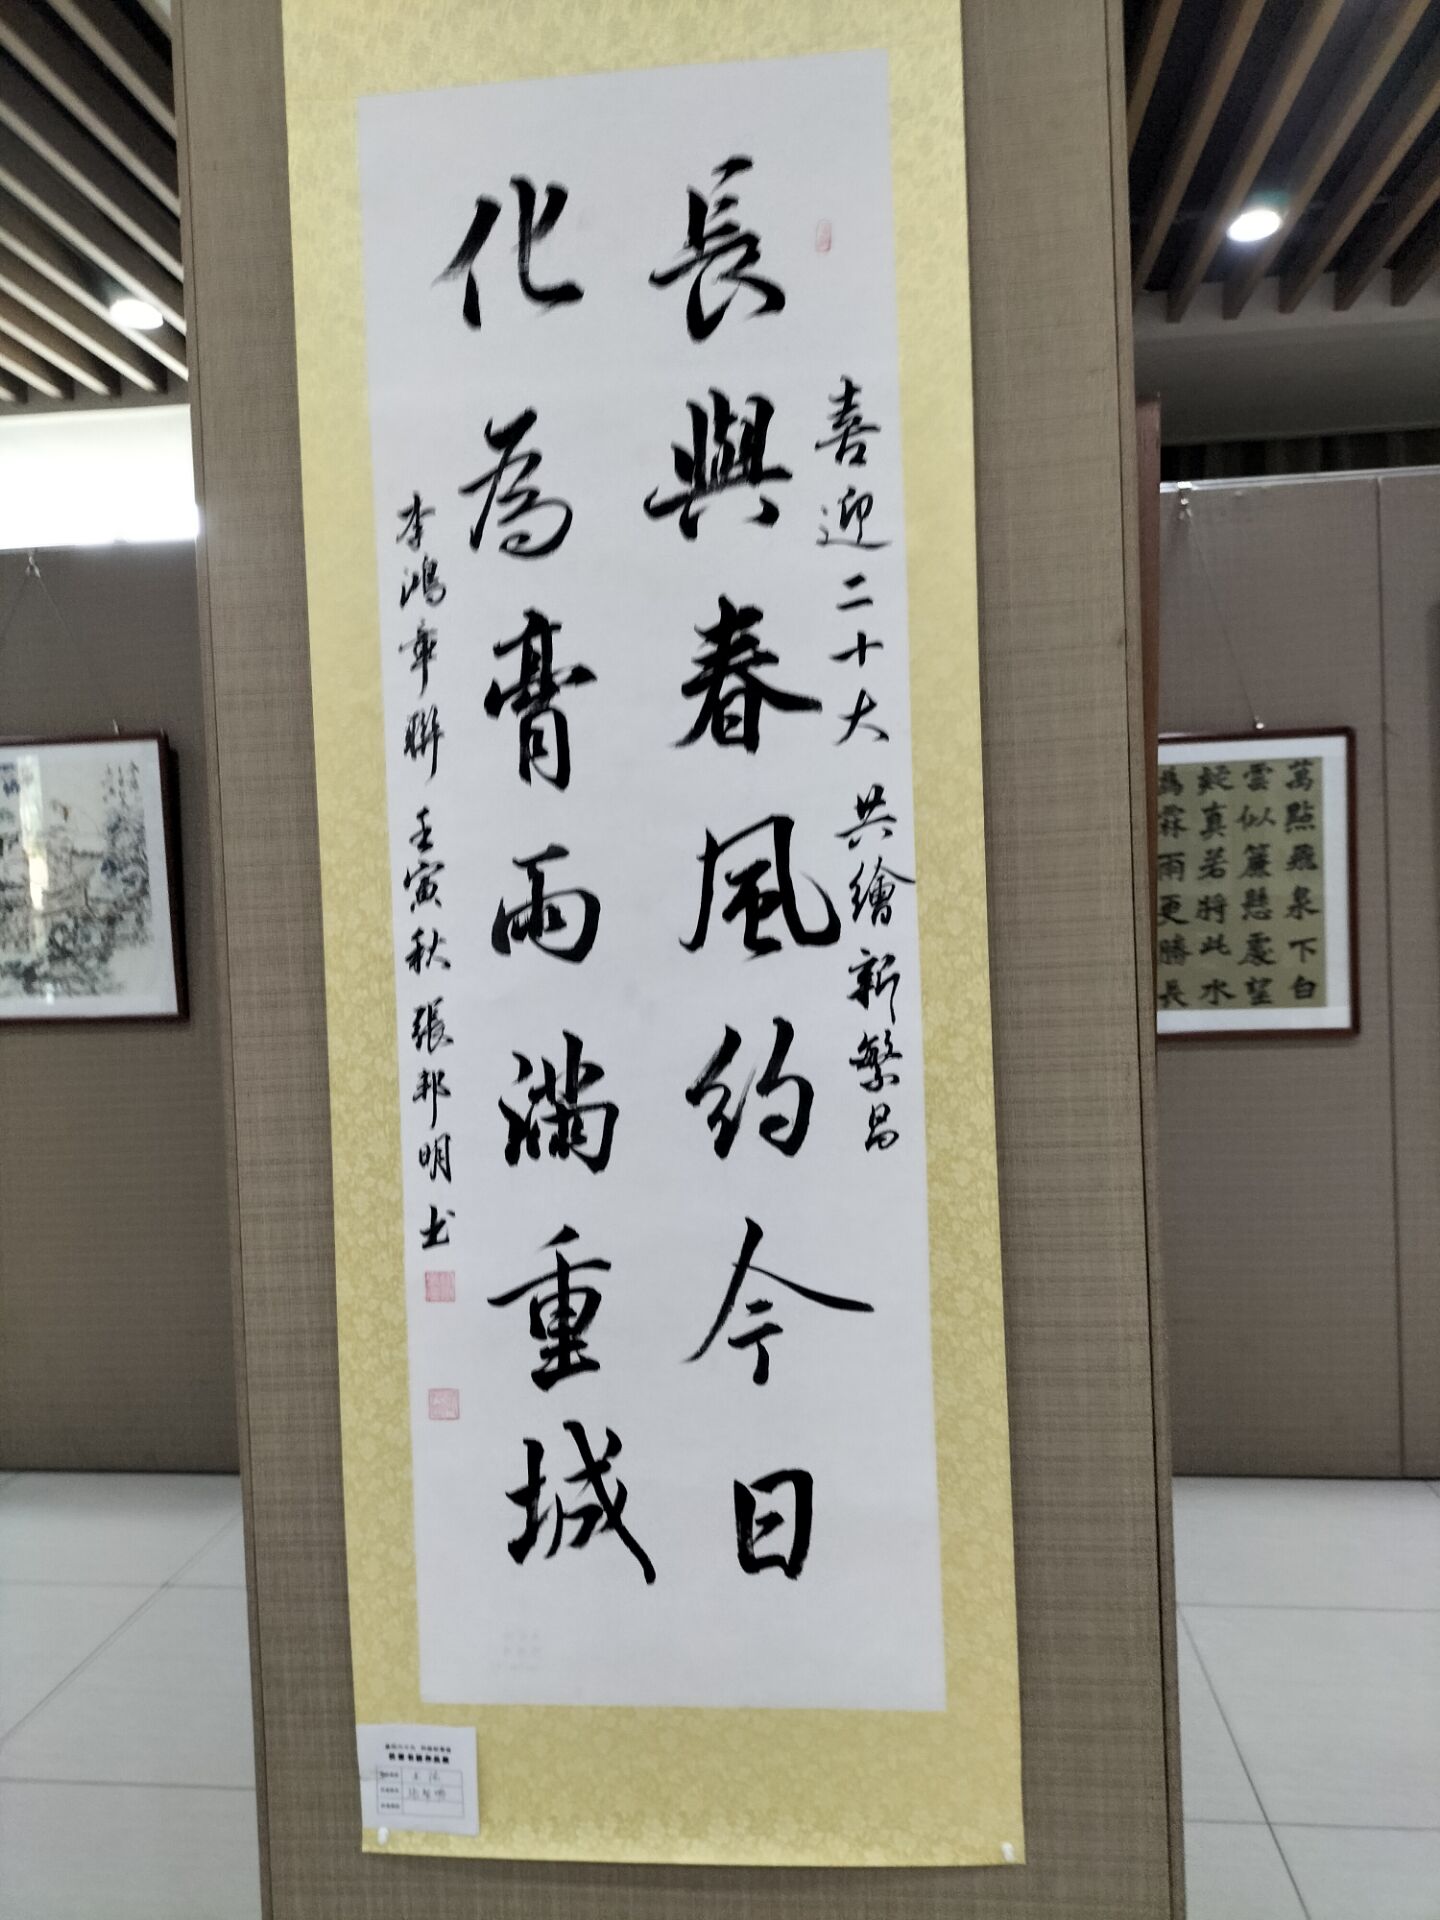 喜迎二十大 共繪新繁昌
長與春風約今日
化為膏雨滿重城
李鴻章聯 壬寅秋 張邦明书
萬點飛泉下白
雲似簾懸處望
疑真若將此水
為霖雨更勝長